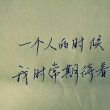 一个人的时候
我时常期待着